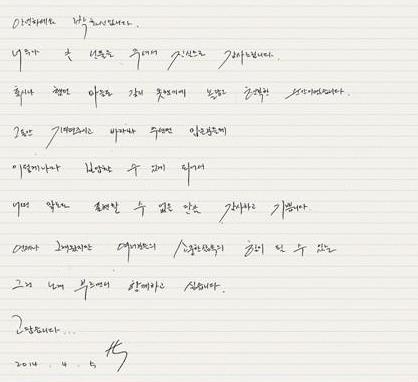 안녕하세요 박효신입니다.
너무나 큰 선물을 주셔서 진심으로 감사드립니다.
혹시나 했던 마음도 갖지 못했기에 놀랍고 행복한 순간이었습니다.
그동안 기다려주시고 바라봐 주셨던 입은분들께
이렇게나마 보답할 수 있게 되어서
어떤 말로도 표현할 수 없을 만큼 감사하고 기쁩니다.
언제나 그래왔지만 여러분들의 소중한 삶속의 힘이 될 수 있는
그런 노래 부르면서 함께하고 싶습니다.
고맙습니다...
2014. 4. 5